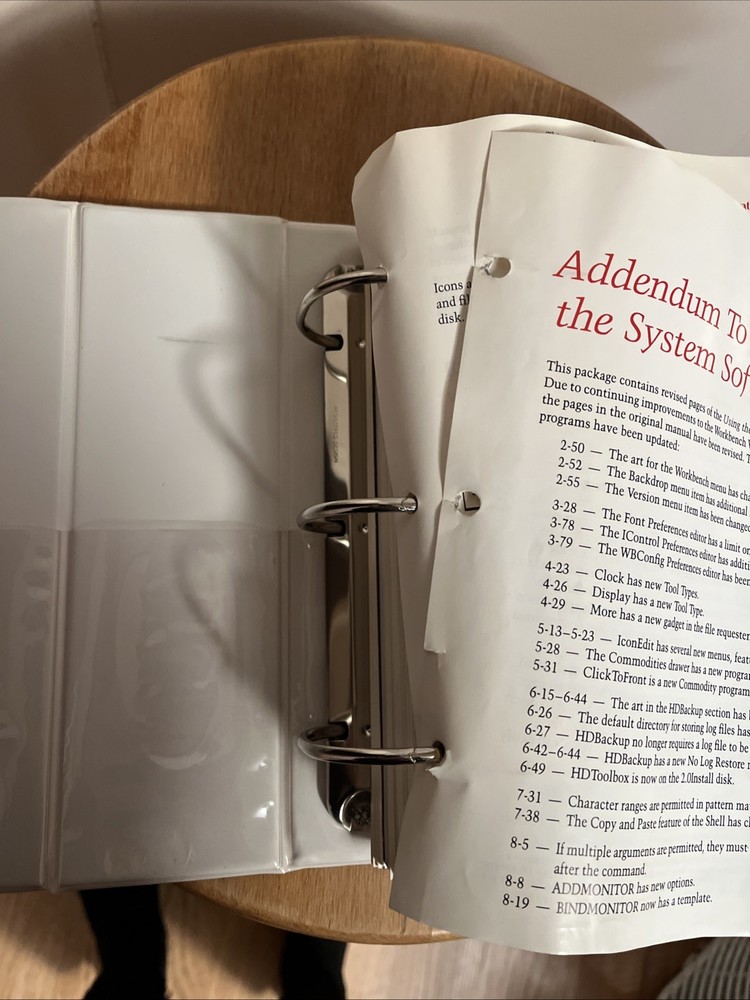 Icons a
and fil
disk.
Addendum To
the System Sof
This package contains revised pages of the Using the
Due to continuing improvements to the Workbench
the pages in the original manual have been revised. T
programs have been updated:
2-50 — The art for the Workbench menu has cha
2-52 — The Backdrop menu item has additional
2-55 — The Version menu item has been changed
3-28 — The Font Preferences editor has a limit on
3-78 — The IControl Preferences editor has additi
3-79 — The WBConfig Preferences editor has been
4-23 — Clock has new Tool Types.
4-26 — Display has a new Tool Type.
4-29 — More has a new gadget in the file requester
5-13–5-23 — IconEdit has several new menus, feat
5-28 — The Commodities drawer has a new progra
5-31 — ClickToFront is a new Commodity program
6-15–6-44 — The art in the HDBackup section has
6-26 — The default directory for storing log files has
6-27 — HDBackup no longer requires a log file to be
6-42–6-44 — HDBackup has a new No Log Restore
6-49 — HDToolbox is now on the 2.0Install disk.
7-31 — Character ranges are permitted in pattern ma
7-38 — The Copy and Paste feature of the Shell has c
8-5 — If multiple arguments are permitted, they must
after the command.
8-8 — ADDMONITOR has new options.
8-19 — BINDMONITOR now has a template.